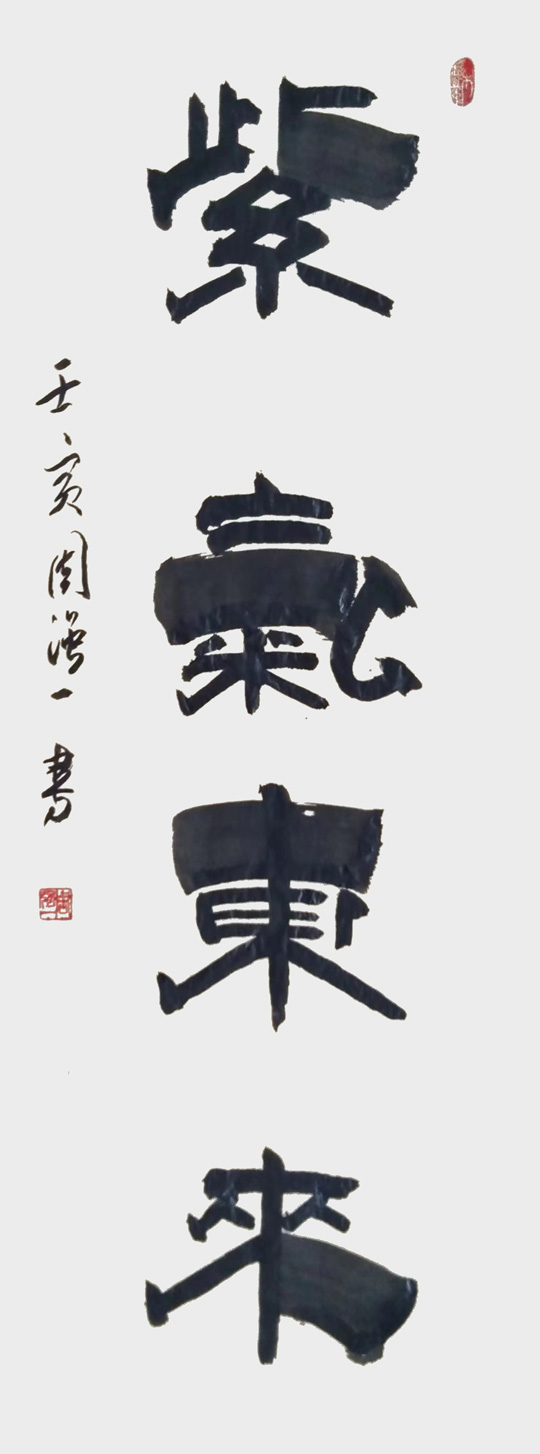 紫氣東來
壬寅周強一書